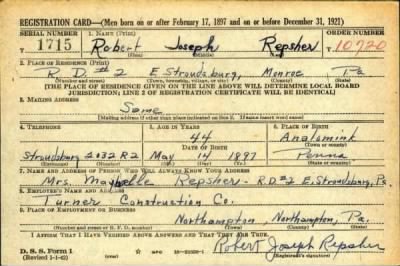 REGISTRATION CARD—(Men born on or after February 17, 1897 and on or before December 31, 1921)
SERIAL NUMBER 1. NAME (Print) ORDER NUMBER
1715 Robert Joseph Repsher 10720
(First) (Middle) (Last)
2. PLACE OF RESIDENCE (Print)
R.D.#2 E. Stroudsburg, Monroe, Pa
(Number and street) (Town, township, village, or city) (County) (State)
[THE PLACE OF RESIDENCE GIVEN ON THE LINE ABOVE WILL DETERMINE LOCAL BOARD
JURISDICTION; LINE 2 OF REGISTRATION CERTIFICATE WILL BE IDENTICAL]
3. MAILING ADDRESS
Same
(Mailing address if other than place indicated on line 2. If same insert word same)
4. TELEPHONE 5. AGE IN YEARS 6. PLACE OF BIRTH
44 Analomink
DATE OF BIRTH
Stroudsburg 2032R2 May 14 1897 Penna
7. NAME AND ADDRESS OF PERSON WHO WILL ALWAYS KNOW YOUR ADDRESS
Mrs. Maybelle Repsher - R.D.#2 E. Stroudsburg, Pa.
8. EMPLOYER'S NAME AND ADDRESS
Turner Construction Co.
9. PLACE OF EMPLOYMENT OR BUSINESS
Northampton, Northampton, Pa.
(Number and street or R. F. D. number) (Town) (County) (State)
I AFFIRM THAT I HAVE VERIFIED ABOVE ANSWERS AND THAT THEY ARE TRUE.
D. S. S. Form 1
(Revised 1-1-42) Robert Joseph Repsher
(Registrant's signature)